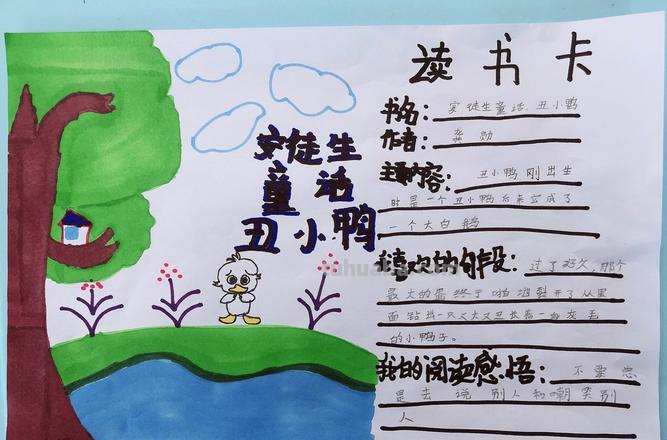 读书卡
安徒生
童话
丑小鸭
书名：安徒生童话.丑小鸭
作者：龚勋
主要内容：丑小鸭刚出生
时是一个丑小鸭后来变成了
一个大白鹅
我喜欢的句段：过了好久，那个
最大的蛋终于啪裂开了从里
面钻出一只又大又丑长着一身灰毛
的小鸭子。
我的阅读感悟：不要总
是去说别人和嘲笑别
人